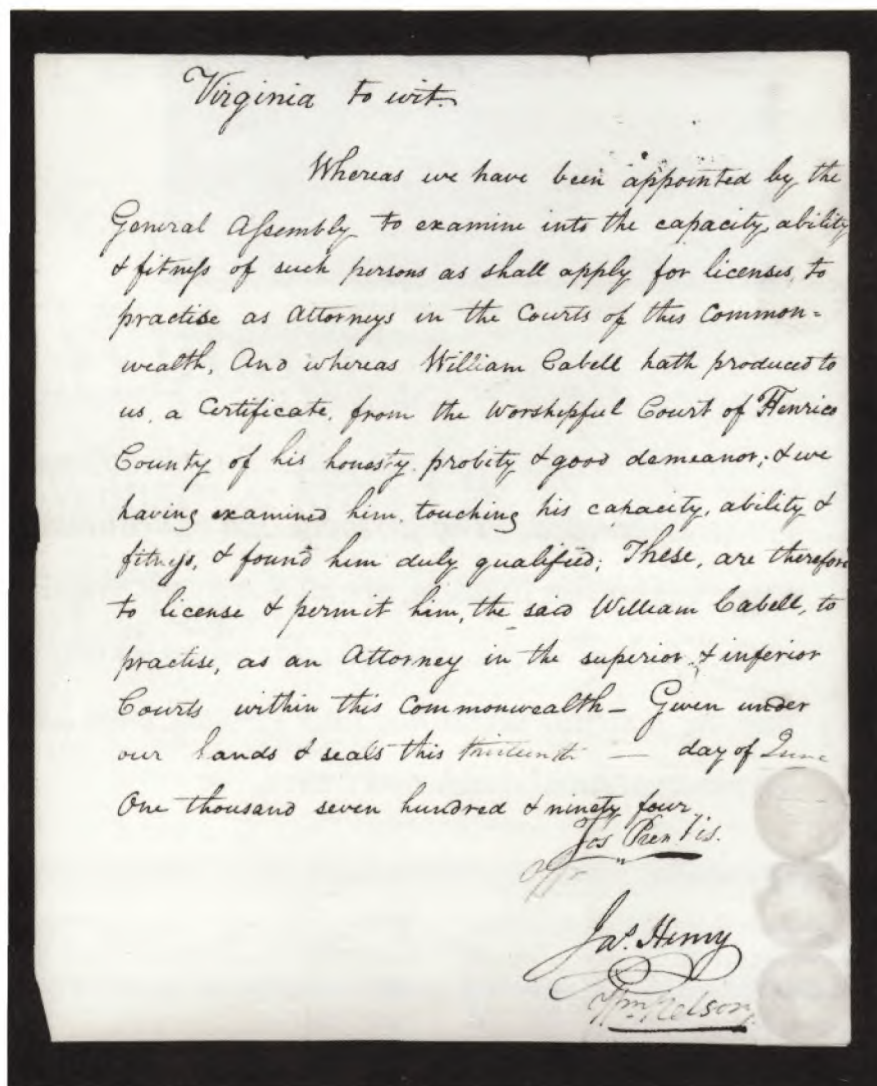 Virginia to wit.
Whereas we have been appointed by the
General Assembly, to examine into the capacity, ability
& fitness of such persons as shall apply for licenses, to
practise as Attorneys in the Courts of this Common=
wealth, And whereas William Cabell hath produced to
us, a Certificate, from the Worshipful Court of Henrico
County of his honesty, probity & good demeanor; & we
having examined him, touching his capacity, ability &
fitness, & found him duly qualified; These, are therefore
to license & permit him, the said William Cabell, to
practise, as an Attorney in the superior & inferior
Courts within this Commonwealth — Given under
our hands & seals this thirteenth — day of June
One thousand seven hundred & ninety four
Jos Prentis.
Jas. Henry
Wm. Nelson